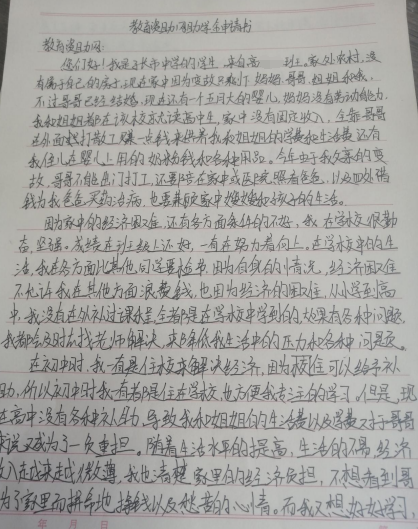 教育资助(困)助学金申请书
教育资助网:
您们好!我是于长平中学的学生,来自高 班。家处农村,没
有属于自己的房子,现在家中因为变故只剩下妈妈、哥哥、姐姐和我,
不过哥哥已经结婚,现还有一个五月大的婴儿,妈妈没有劳动能力,
我和姐姐都在该校东读高中生,家中没有固定收入,全靠哥哥
在外面拼打散工赚一点钱来供养我和姐姐的学费和生活费还有
我侄儿在婴儿上用的奶粉钱和各种用品。今年由于我爸爸的变
故,哥哥不能出门打工,还要陪在家中或医院照看爸爸,以及四处借
钱为我爸爸买药治病,也要兼顾家中嫂嫂和孩子的生活。
因为家中的经济困难,还有各方面条件的不好,我在学校很勤
奋,坚强。成绩在班级上还好,一直在努力着向上。在学校中的生
活,我在各方面比其他同学要检节,因为自身的情况,经济困难
不允许我在其他方面浪费钱,也因为经济的困难,从小学到高
中,我没有在外补过课程,全都是在学校中学到的,如果有各种问题,
我都会及时去找老师解决,来降低我生活中的压力和各种问题。
在初中时,我一直是住校来解决经济,因为校住可以给予补
助,所以初中时我一直都是住在学校,也方便我专注的学习。但是,现
在高中没有各种补助,导致我和姐姐的生活费以及学费又对于哥哥
来说又成为了一负重担。随着生活水平的提高,生活的不易,经济
收入越来越微薄,我也清楚家里的经济负担,不想看到哥
为了家里而拼命地挣钱以及愁苦的心情。而我又想好好学习,
年 月 日